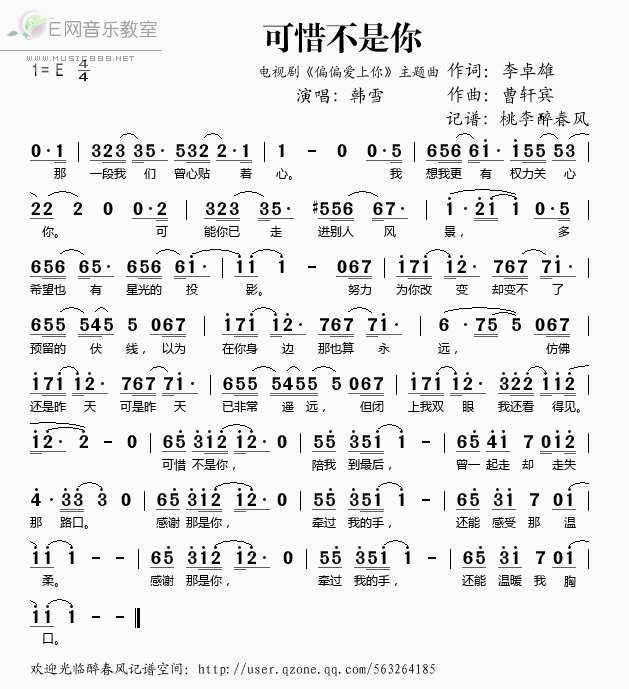 E网音乐教室
www.music888.net
可惜不是你
1=E 4/4
电视剧《偏偏爱上你》主题曲 作词：李卓雄
演唱：韩雪 作曲：曹轩宾
记谱：桃李醉春风
0·1 | 323 35· 532 2·1 | 1 - 0 0·5 | 656 61· 155 53 |
那 一段我 们 曾心贴 着 心。 我 想我更 有 权力关 心
22 2 0 0·2 | 323 35· #556 67· | 1·21 1 0·5 |
你。 可 能你已 走 进别人 风 景， 多
656 65· 656 61· | 11 1 - 067 | 171 12· 767 71· |
希望也 有 星光的 投 影。 努力 为你改 变 却变不 了
655 545 5 067 | 171 12· 767 71· | 6·75 5 067 |
预留的 伏 线，以为 在你身 边 那也算 永 远， 仿佛
171 12· 767 71· | 655 5455 5 067 | 171 12· 322 112 |
还是昨 天 可是昨 天 已非常 遥 远，但闭 上我双 眼 我还看 得见。
12· 2 - 0 | 65 312 12·0 | 55 351 1 - | 65 41 7 012 |
可惜 不是你， 陪我 到最后， 曾一 起走 却 走失
4·33 3 0 | 65 312 12·0 | 55 351 1 - | 65 31 7 01 |
那 路口。 感谢 那是你， 牵过 我的手， 还能 感受 那 温
11 1 - - | 65 312 12·0 | 55 351 1 - | 65 31 7 01 |
柔。 感谢 那是你， 牵过 我的手， 还能 温暖 我 胸
11 1 - - ‖
口。
欢迎光临醉春风记谱空间：http://user.qzone.qq.com/563264185